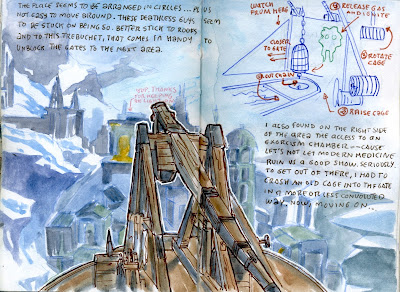 THE PLACE SEEMS TO BE ARRANGED IN CIRCLES... AND IS
NOT EASY TO MOVE AROUND. THESE DEATHLESS GUYS SEEM
TO BE STUCK ON BEING SO. BETTER STICK TO ROOFS
AND TO THIS TREBUCHET, THAT COMES IN HANDY TO
UNBLOCK THE GATES TO THE NEXT AREA.
"YUP. THANKS
FOR
WATCH
FROM HERE
CLOSER
TO GATE
① CUT CHAIN
④ RELEASE GAS
AND IGNITE
② ROTATE
CAGE
③ RAISE CAGE
I ALSO FOUND ON THE RIGHT SIDE
OF THE AREA THE ACCESS TO AN
EXORCISM CHAMBER--CAUSE
LET'S NOT LET MODERN MEDICINE
RUIN US A GOOD SHOW. SERIOUSLY.
TO GET OUT OF THERE, I HAD TO
CRASH AN OLD CAGE INTO THE GATE
IN A MORE OR LESS CONVOLUTED
WAY. NOW, MOVING ON...